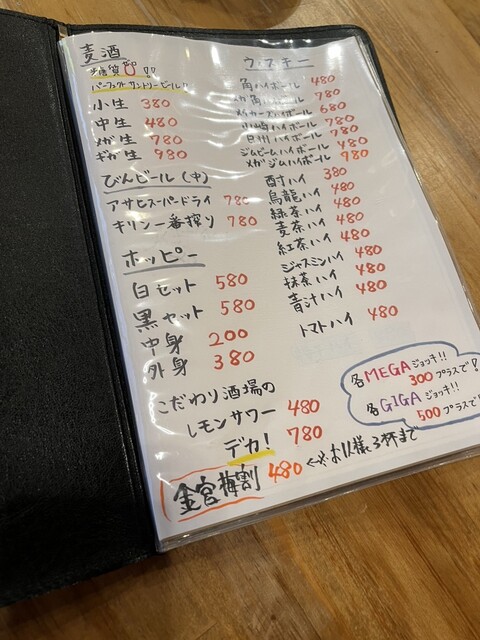 麦酒
糖質0!!
パーフェクトサントリービール!!
小生 380
中生 480
メガ生 780
ギガ生 980
びんビール(中)
アサヒスーパードライ 780
キリン一番搾り 780
ホッピー
白セット 580
黒セット 580
中身 200
外身 380
こだわり酒場の
レモンサワー 480
デカ! 780
金宮梅割 480 ←※お1人様3杯まで
ウィスキー
角ハイボール 480
メガ角ハイボール 780
メーカーズハイボール 680
山崎ハイボール 780
白州ハイボール 780
ジムビームハイボール 480
メガジムハイボール 780
酎ハイ 380
烏龍ハイ 480
緑茶ハイ 480
麦茶ハイ 480
紅茶ハイ 480
ジャスミンハイ 480
抹茶ハイ 480
青汁ハイ 480
トマトハイ 480
各MEGAジョッキ!!
300プラスで!
各GIGAジョッキ!!
500プラスで!